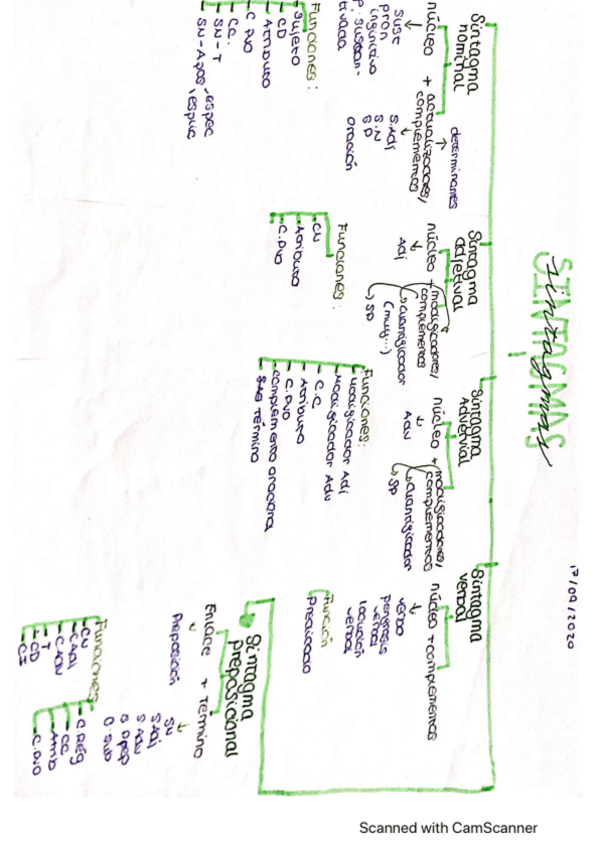 SINTAGMAS
sintagmas
17/09/2020
Sintagma
nominal
núcleo + actualizadores/
complementos
determinantes
sust
pron
infinitivo
P. sustan-
tivada
S.Adj
S.N
S P
oración
Funciones:
Sujeto
CD
Atributo
C. PVO
CC.
SN-T
SN-Apos, espec
, explic
Sintagma
adjetival
núcleo + modificadores/
complementos
Adj
cuantificador
(muy...)
SP
Funciones:
CN
Atributo
C. PVO
Sintagma
Adverbial
núcleo + modificadores/
complementos
Adv
cuantificador
SP
Funciones:
Modificador Adj
Modificador Adv
C.C
Atributo
C. PVO
complemento oracional
SAdv Término
Sintagma
verbal
núcleo + complementos
verbo
perífrasis
verbal
locución
verbal
Función
Predicado
Sintagma
preposicional
Enlace + Término
Preposición
SN
S Adj
S Adv
S Prep
O. sub
Funciones
CN
C.Adj
C.ADV
T
CD
CI
C.Rég
CC
Atrib
C. PVO
Scanned with CamScanner